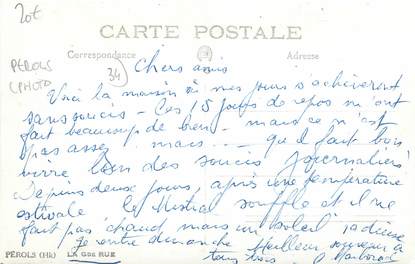 20€
CARTE POSTALE
Correspondance
Adresse
PÉROLS
(PHOTO
34
Chers amis
Voici la maison où mes jours s'achèveront
sans soucis - Ces 15 jours de repos m'ont
fait beaucoup de bien - mais ce n'est
pas assez mais --- qu'il fait bon
vivre loin des soucis journaliers
Depuis deux jours, après une température
estivale le Mistral souffle et il ne
fait pas chaud, mais un soleil radieux
Je rentre dimanche Meilleur souvenir à
tous trois
PÉROLS (Hlt) LA GDE RUE